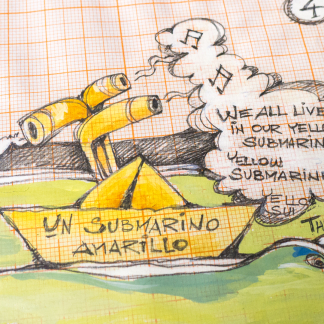 4
WE ALL LIVE
IN OUR YELL
SUBMARIN
YELLOW
SUBMARIN
YELLO
SU
TH
UN SUBMARINO
AMARILLO